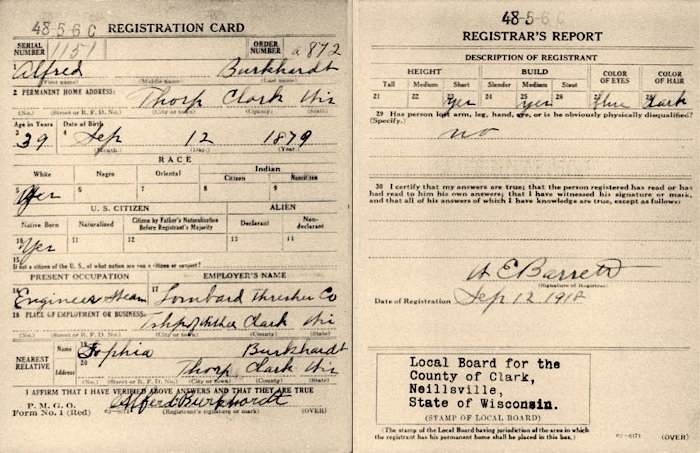 48-5-6 C REGISTRATION CARD
SERIAL NUMBER 1151 ORDER NUMBER a 872
1 Alfred Burkhardt
(First name) (Middle name) (Last name)
2 PERMANENT HOME ADDRESS:
Thorp Clark Wis
(No.) (Street or R. F. D. No.) (City or town) (County) (State)
Age in Years Date of Birth
3 39 4 Sep 12 1879
(Month.) (Day.) (Year.)
RACE
White Negro Oriental Indian
Citizen Noncitizen
5 Yes 6 7 8 9
U. S. CITIZEN ALIEN
Native Born Naturalized Citizen by Father's Naturalization Before Registrant's Majority Declarant Non-declarant
10 Yes 11 12 13 14
15
If not a citizen of the U. S., of what nation are you a citizen or subject?
PRESENT OCCUPATION EMPLOYER'S NAME
16 Engineer Steam 17 Lombard Thresher Co
18 PLACE OF EMPLOYMENT OR BUSINESS:
Clark Wis
(No.) (Street or R. F. D. No.) (City or town) (County) (State)
NEAREST RELATIVE
Name 19 Sophia Burkhardt
Address 20 Thorp Clark Wis
(No.) (Street or R. F. D. No.) (City or town) (County) (State)
I AFFIRM THAT I HAVE VERIFIED ABOVE ANSWERS AND THAT THEY ARE TRUE
P. M. G. O.
Form No. 1 (Red) Alfred Burkhardt
(Registrant's signature or mark) (OVER)
48-5-6 C
REGISTRAR'S REPORT
DESCRIPTION OF REGISTRANT
HEIGHT BUILD COLOR OF EYES COLOR OF HAIR
Tall Medium Short Slender Medium Stout
21 22 23 Yes 24 25 Yes 26 27 Blue 28 Dark
29 Has person lost arm, leg, hand, eye, or is he obviously physically disqualified?
(Specify.) no
30 I certify that my answers are true; that the person registered has read or has
had read to him his own answers; that I have witnessed his signature or mark,
and that all of his answers of which I have knowledge are true, except as follows:
Barrett
(Signature of Registrar)
Date of Registration Sep 12 1918
Local Board for the
County of Clark,
Neillsville,
State of Wisconsin.
(STAMP OF LOCAL BOARD)
(The stamp of the Local Board having jurisdiction of the area in which
the registrant has his permanent home shall be placed in this box.)
(OVER)